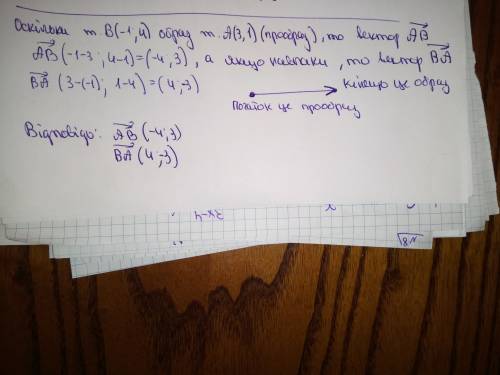 Оскільки т. B(-1,4) образ т. A(3,1) (прообраз), то вектор AB
AB (-1-3; 4-1)=(-4; 3), а якщо навпаки, то вектор BA
BA (3-(-1); 1-4)=(4;-3)
Кінець це образ
Початок це прообраз
Відповідь: AB (-4;3)
BA (4;-3)
3x-4
√8